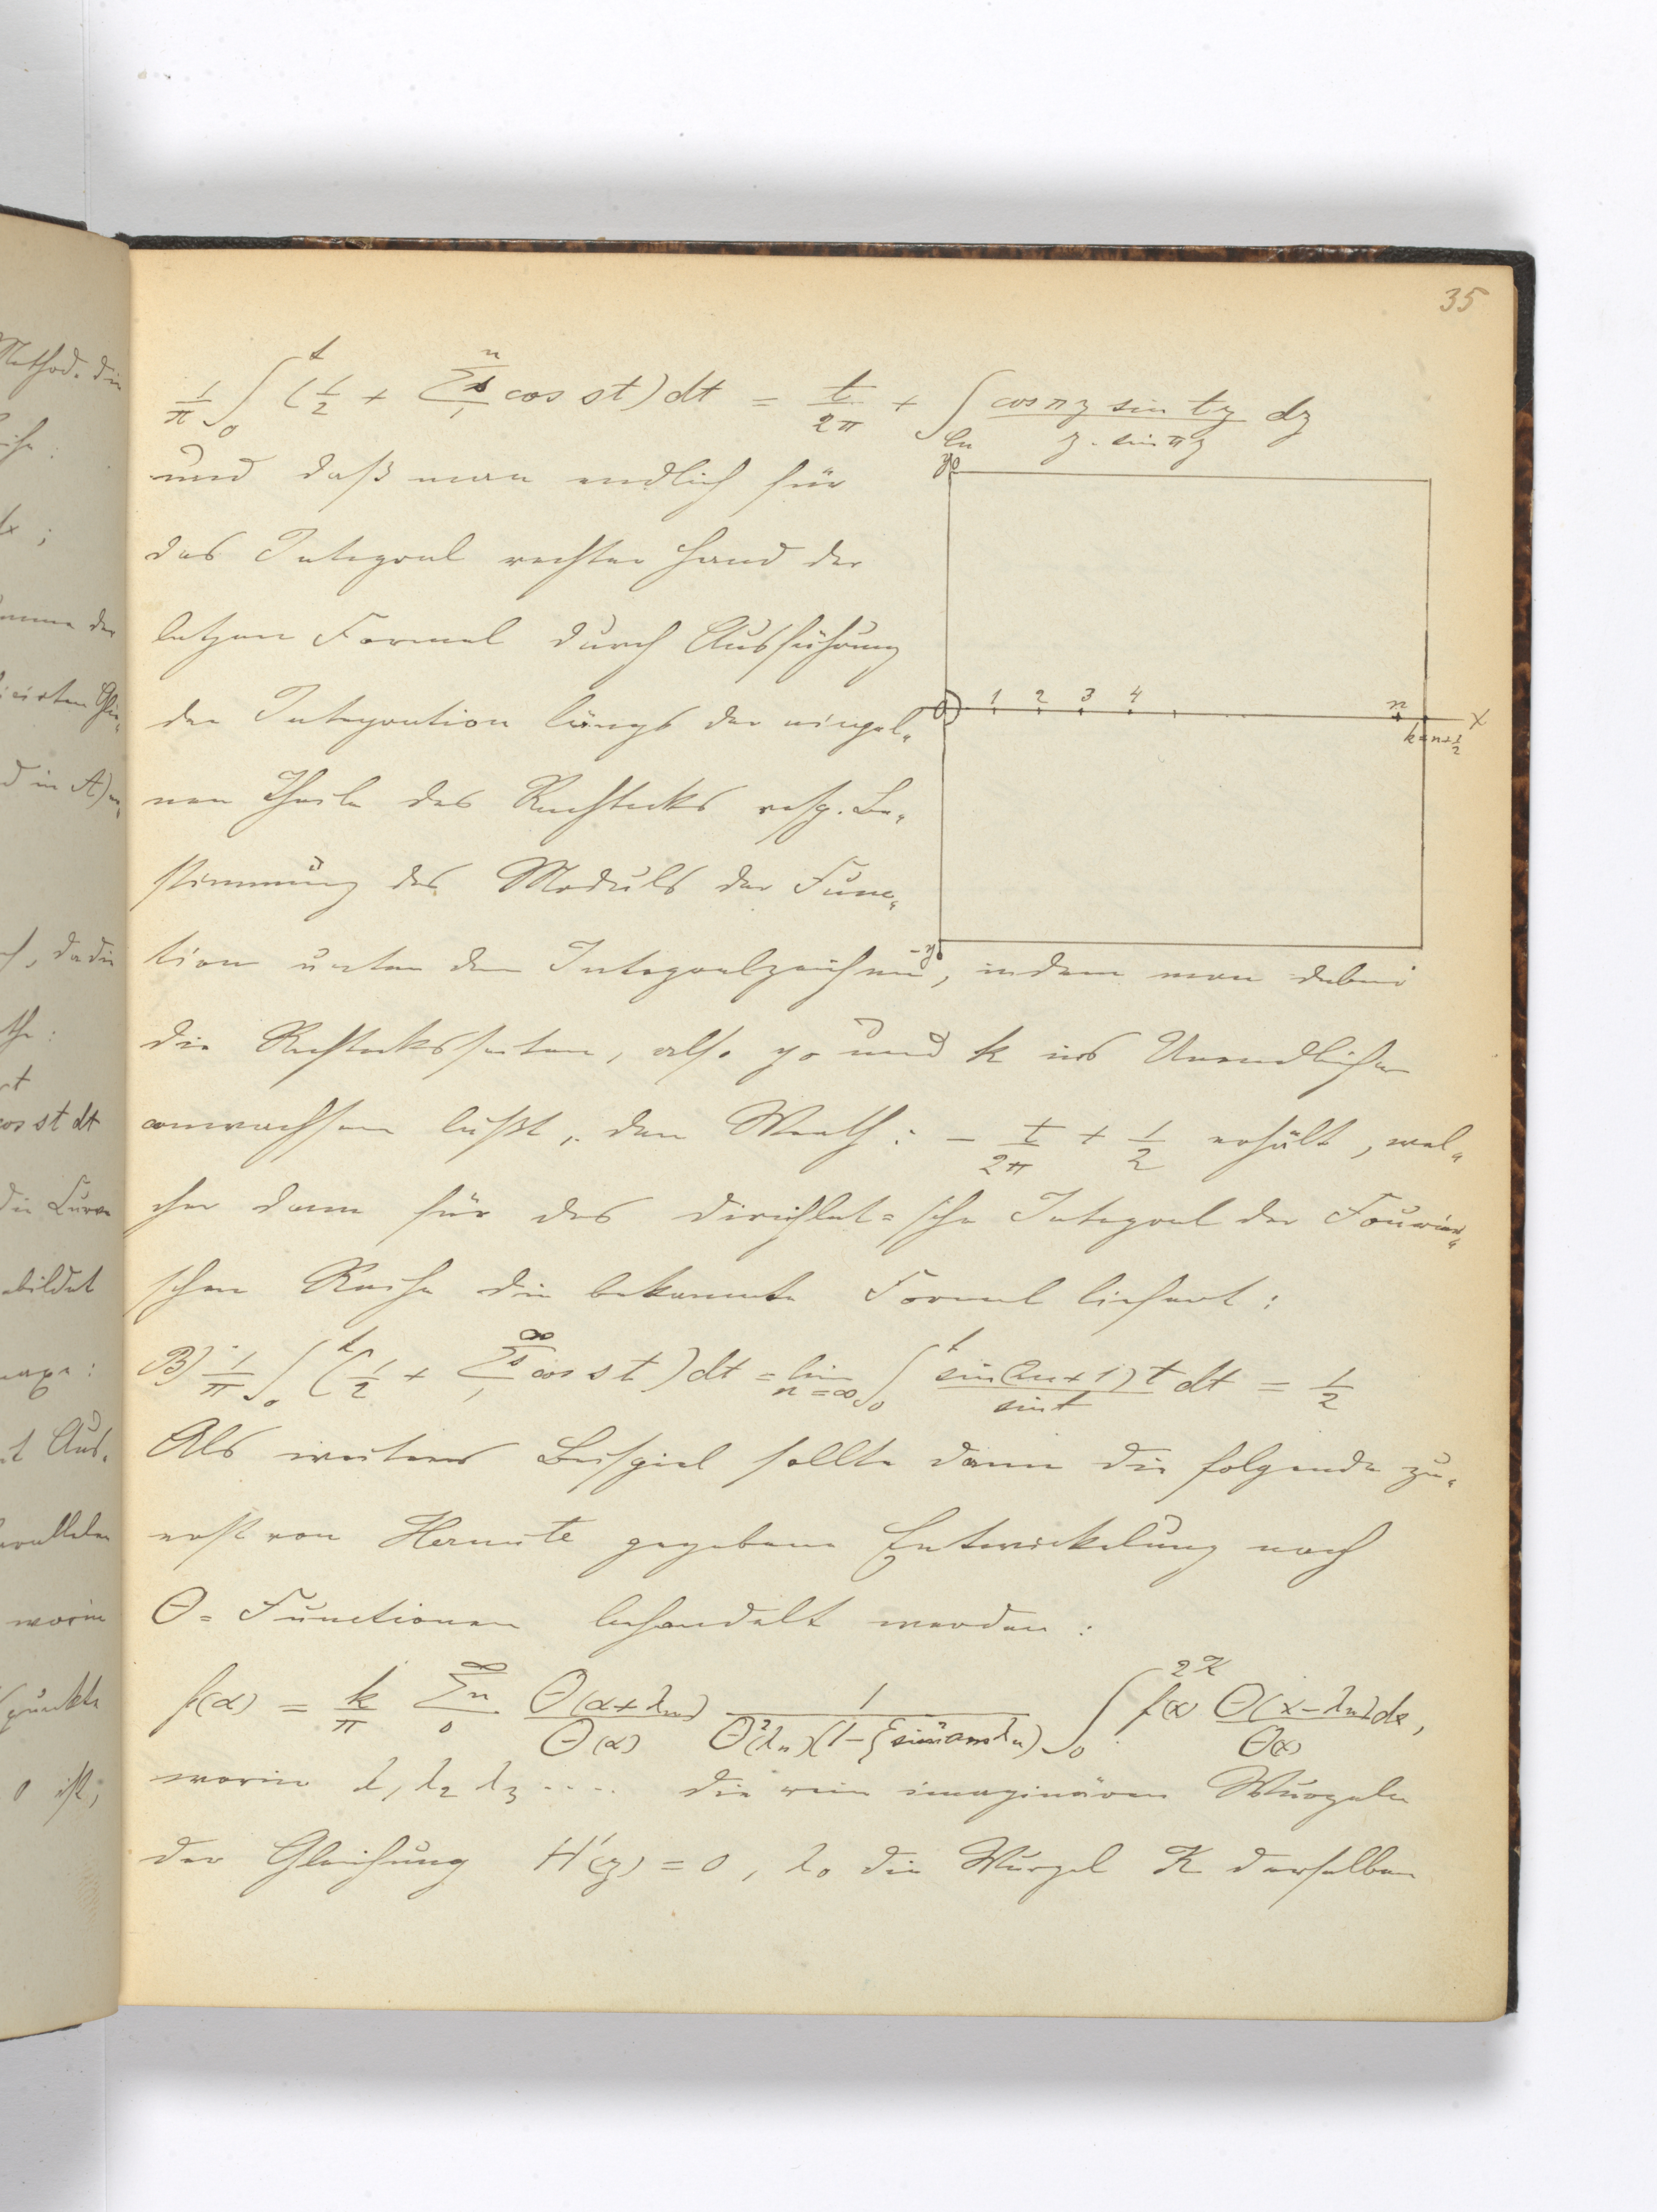 35
1/π ∫₀ᵗ (1/2 + Σ₁ⁿ ˢ cos st) dt = t/2π + ∫_{Cn} (cos πz sin tz)/(z · sin πz) dz
und daß man endlich für
das Integral rechter Hand der
letzen Formel durch Ausführung
der Integration längs der einzel-
nen Theile des Rechtecks resp. Be-
stimmung des Moduls der Func-
tion unter dem Integralzeichen, indem man dabei
y₀
0 1 2 3 4 n X
k=n+1/2
-y₀
die Rechtecksseiten, also y₀ und k ins Unendliche
anwachsen läßt, den Werth: - t/2π + 1/2 erhält, wel-
cher dann für das Dirichlet-sche Integral der Fourier-
schen Reihe die bekannte Formel liefert:
B) 1/π ∫₀ᵗ (1/2 + Σ₁^∞ ˢ cos st) dt = lim_{n=∞} ∫₀ᵗ (sin(2n+1)t)/(sin t) dt = 1/2
Als weiteres Beispiel sollte dann die folgende zu-
erst von Hermite gegebene Entwickelung nach
Θ-Functionen behandelt werden:
f(α) = k/π Σ₀^∞ ⁿ Θ(α+λₙ)/Θ(α) 1/(Θ²(λₙ)(1-ξ sin² am λₙ)) ∫₀^{2K} f(x) Θ(x-λₙ)/Θ(x) dx,
worin λ₁ λ₂ λ₃ .... die rein imaginären Wurzeln
der Gleichung H'(z) = 0, λ₀ die Wurzel K derselben